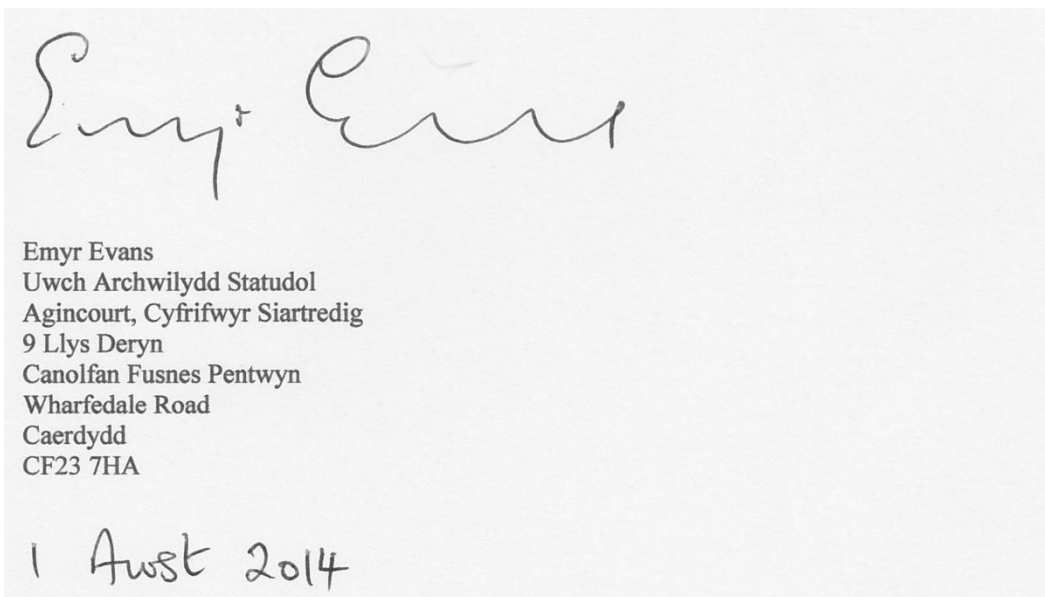 Emyr Evans
Emyr Evans
Uwch Archwilydd Statudol
Agincourt, Cyfrifwyr Siartredig
9 Llys Deryn
Canolfan Fusnes Pentwyn
Wharfedale Road
Caerdydd
CF23 7HA
1 Awst 2014